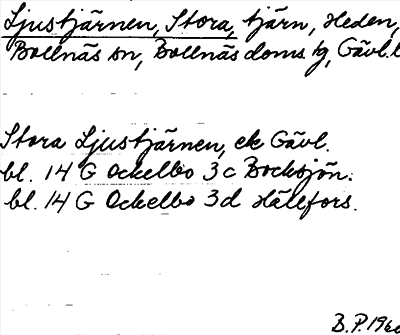 Ljustjärnen, Stora, tjärn, Heden,
Bollnäs sn, Bollnäs doms. tg, Gävl. l
Stora Ljustjärnen, ek Gävl.
bl. 14 G Ockelbo 3c Bocksjön.
bl. 14 G Ockelbo 3d Hällfors.
B.P. 196